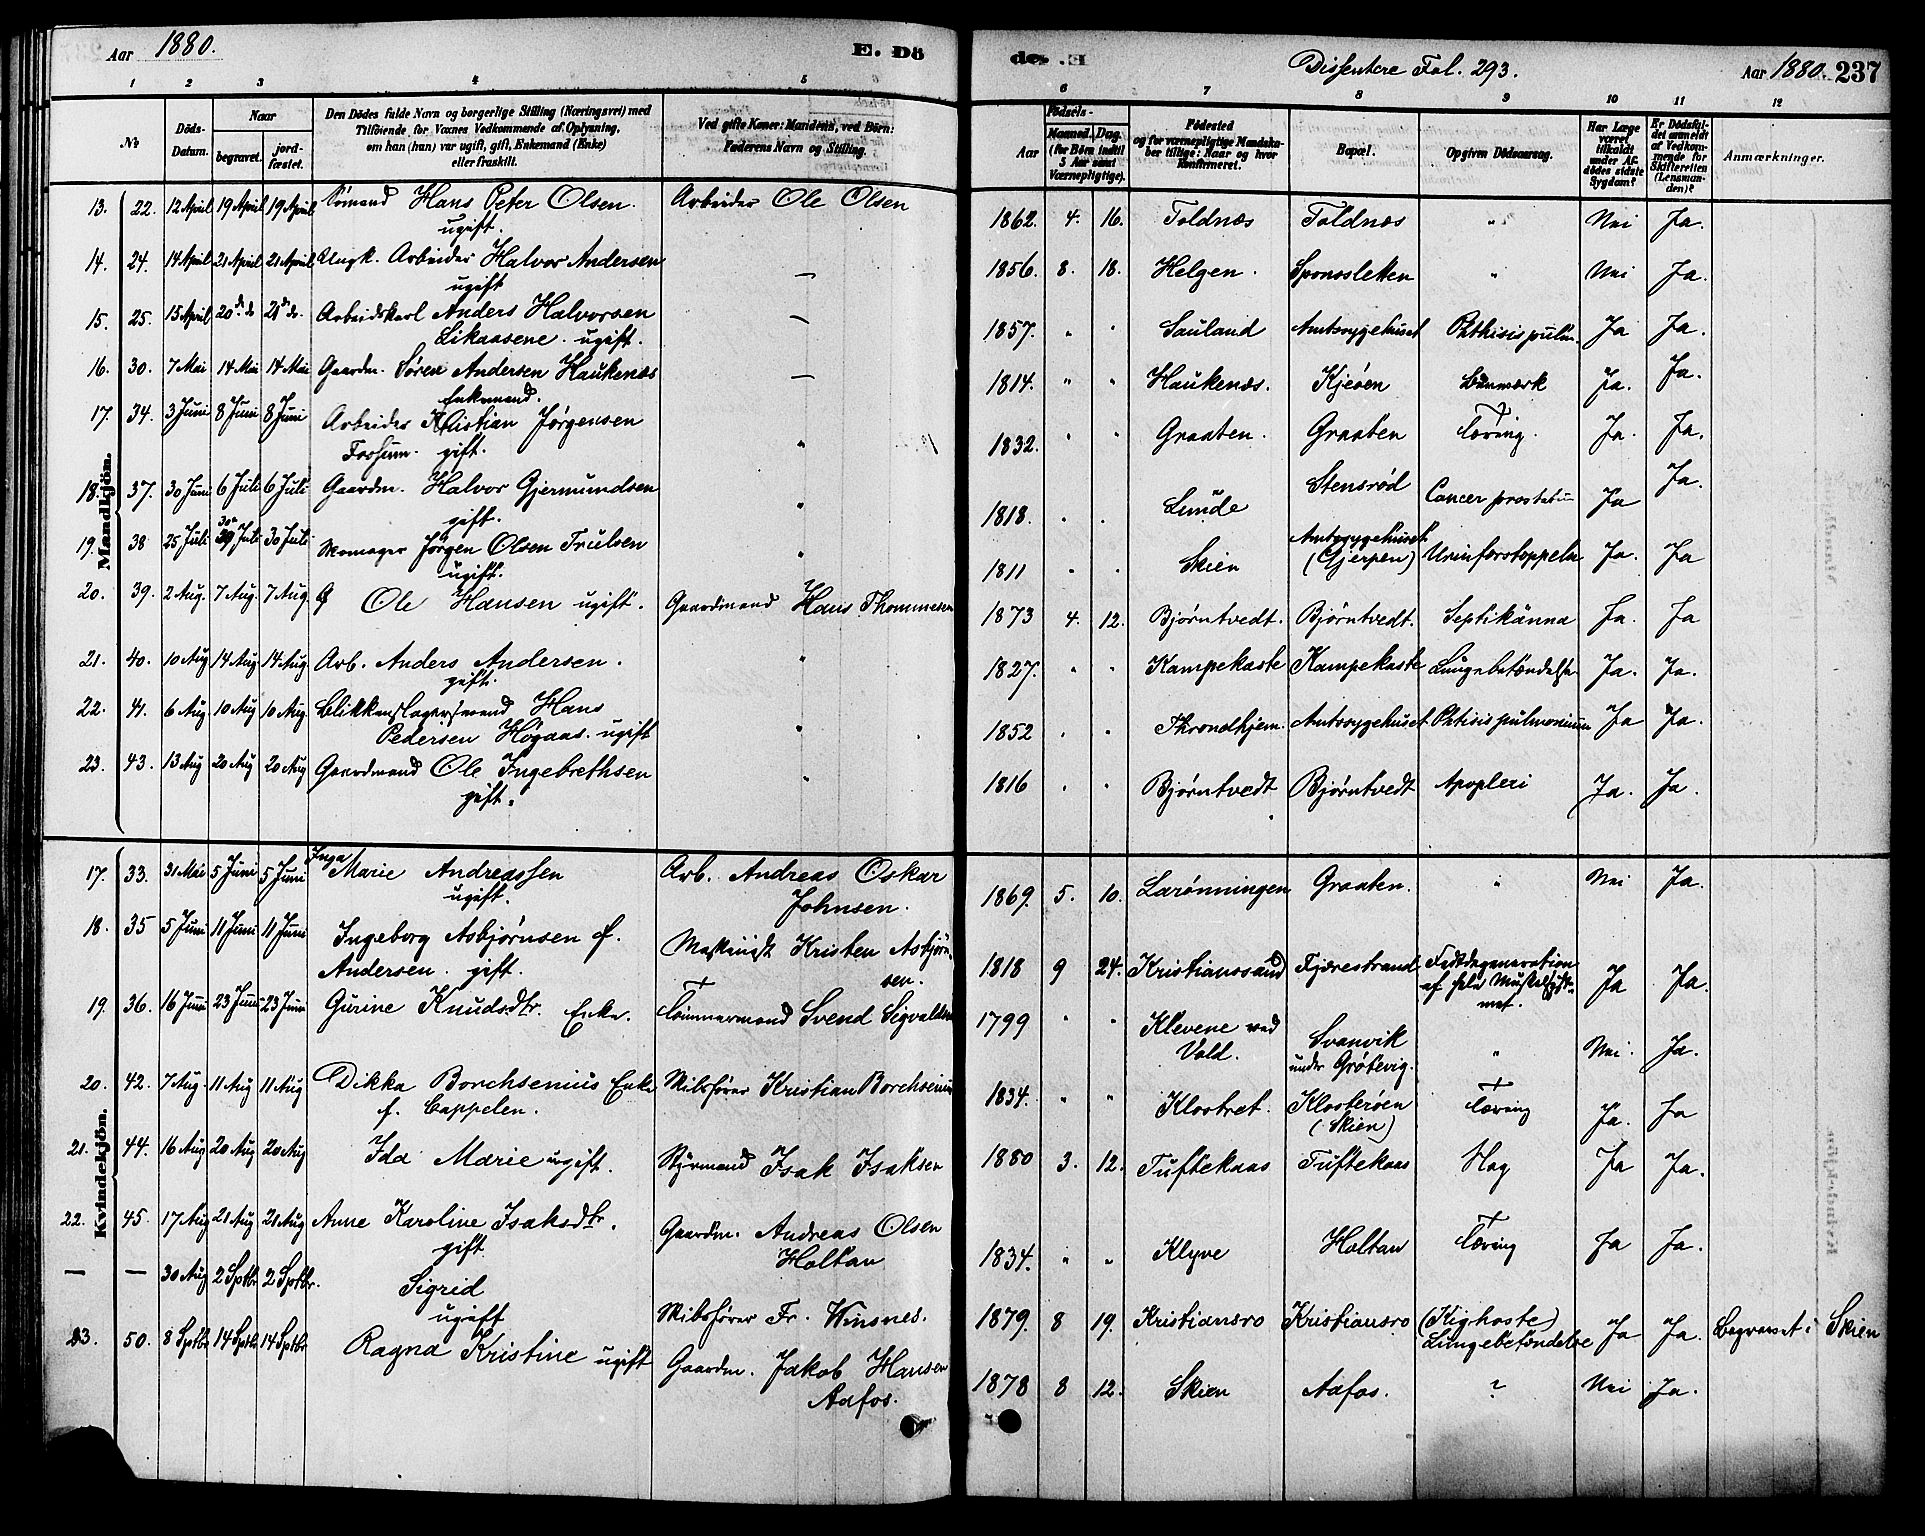 Aar 1880. E. Dö
de. E Dissentere Fol. 293. Aar 1880. 237
1 2 3 4 5
6 7 8 9 10 11 12
№ Döds-Datum. Naar begravet. jordfæstet. Den Dödes fulde Navn og borgerlige Stilling (Næringsvei) med Tilföiende for Voxnes Vedkommende af Oplysning, om han (hun) var ugift, gift, Enkemand (Enke) eller fraskilt. Ved gifte Koner: Mandens, ved Börn: Faderens Navn og Stilling.
Födsels- Aar Maaned. Dag. (for Börn indtil 5 Aar samt Værnepligtige). Födested og for værnepligtige Mandskaber tillige: Naar og hvor konfirmeret. Bopæl. Opgiven Dödsaarsag. Har Læge været tilkaldt under Afdödes sidste Sygdom? Er Dödsfaldet anmeldt af Vedkommende for Skifteretten (Lensmanden)? Anmærkninger.
Mandkjön.
13. 22. 12 April 19 April 19 April Sømand Hans Peter Olsen. ugift. Arbeider Ole Olsen 1862. 4. 16. Toldnæs Toldnæs " Nei Ja.
14. 24. 14 April 21 April 21 April Ungk. Arbeider Halvor Andersen ugift — 1856. 8. 18. Helgen. Sponsletten " Nei Ja.
15. 25. 15 April 20 de do 20 de do. Arbeidskarl Anders Halvorsen Likaasene. ugift. — 1857. " " Sauland Amtssygehuset Phthisis pulm. Ja Ja.
16. 30. 7 Mai 14 Mai 14 Mai Gaardm. Søren Andersen Haukenæs Enkemand. — 1814. " " Haukenæs. Kjeøen Ja. Ja.
17. 34. 3 Juni 8 Juni 8 Juni Arbeider Kristian Jørgensen Fossum. gift. " 1832. " " Graaten. Graaten Tæring. Ja. Ja.
18. 37. 30 Juni 6 Juli 6 Juli Gaardm. Halvor Gjermundsen gift. " 1818. " " Lunde Stensrød Cancer prostatæ Ja Ja.
19. 38 25 Juli 30 Juli 30 Juli Skomager Jørgen Olsen Trulsen ugift. " 1811 " " Skien Amtssygehuset (Gjerpen) Urinforstoppelse Ja. Ja
20. 39. 2 Aug. 7 Aug. 7 Aug. G Ole Hansen ugift. Gaardmand Hans Thommesen 1873 4. 12. Bjørntvedt. Bjørntvedt. Septikänna Ja. Ja
21. 40. 10 Aug 14 Aug 14 Aug Arb. Anders Andersen. gift. " 1827. " " Kampekaste Kampekaste Lungebetændelse Ja. Ja.
22. 41. 6 Aug 10 Aug 10 Aug. Blikkenslagersvend Hans Pedersen Høgaas. ugift " 1852 " " Throndhjem. Amtssygehuset Phtisis pulmonium Ja Ja.
23. 43. 13 Aug 20 Aug 20 Aug Gaardmand Ole Ingebrethsen gift. " 1816 " " Bjørntvedt Bjørntvedt Apoplexi Ja. Ja.
Kvindekjön.
17. 33. 31 Mai 5 Juni 5 Juni Inga Marie Andreassen ugift. Arb. Andreas Oskar Johnsen. 1869. 5. 10. Larønningen Graaten. " Nei Ja.
18. 35 5 Juni 11 Juni 11 Juni Ingeborg Asbjørnsen f. Andersen. gift. Maskinist Kristen Asbjørnsen. 1818 9 24. Kristianssand Fjærestrand Fedtdegeneration af hele Muskelsystemet. Ja Ja.
19. 36. 16 Juni 23 Juni 23 Juni Gurine Knudsdtr. Enke. Tømmermand Svend Sigvaldsen 1799 " " Klevene ved Vold. Svanvik under Grøtevig. " Nei. Ja.
20. 42. 7 Aug. 11 Aug 11 Aug Dikka Borchsenius Enke f. Cappelen. Skibsfører Kristian Borchsenius 1834. " " Klostret. Klosterøen (Skien) Tæring Ja. Ja
21. 44. 16 Aug 20 Aug 20 Aug Ida Marie ugift. Styrmand Isak Isaksen 1880 3. 12. Tuftekaas Tuftekaas Hag Ja Ja.
22. 45. 17 Aug 21 Aug 21 Aug Anne Karoline Isaksdtr. gift. Gaardm. Andreas Olsen Holtan 1834. " " Klyve Holtan Tæring Ja Ja.
— — 30 Aug 2 Sptbr 2 Sptbr. Sigrid ugift Skibsfører Fr. Winsnes. 1879. 8 19. Kristiansro Kristiansro (Kighoste) Lungebetændelse Ja Ja. Begravet i Skien
23. 50. 8 Sptbr 14 Sptbr 14 Sptbr Ragna Kristine ugift Gaardm. Jakob Hansen Aafos. 1878 8 12. Skien Aafos. ? Nei Ja.